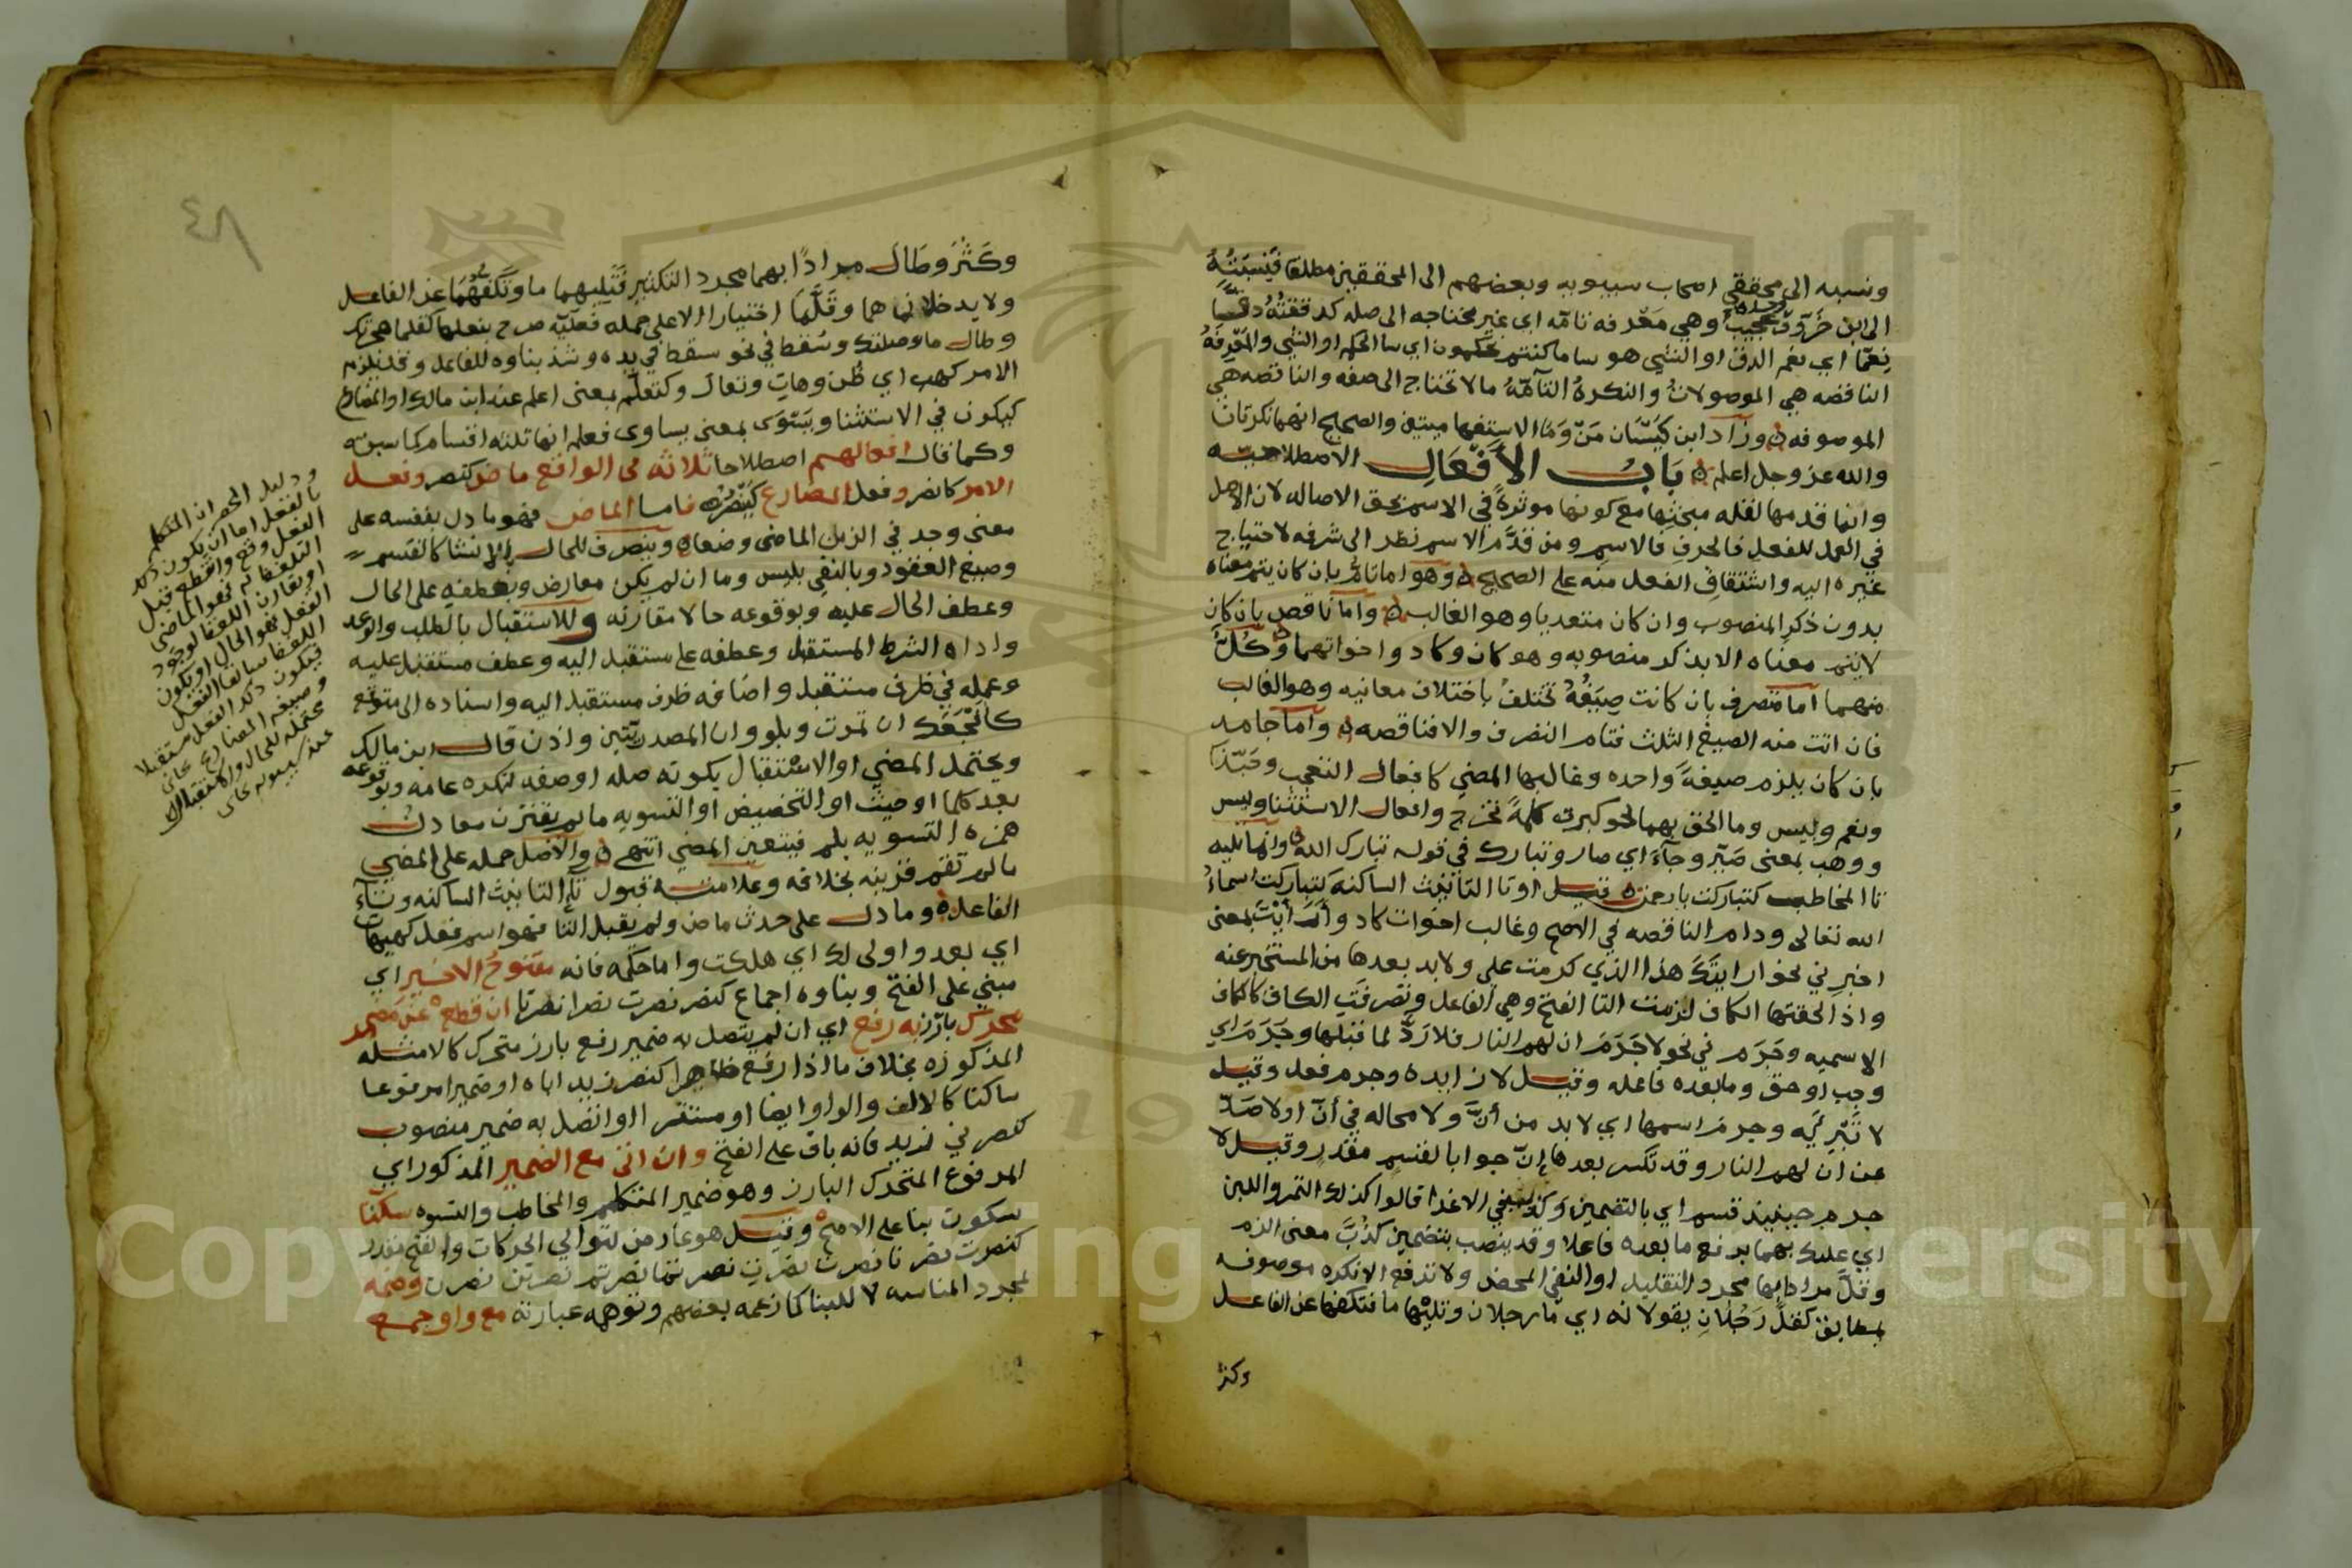 ونسبه الى محققي اصحاب سيبويه وبعضهم الى المحققين مطلقا فينسبته
الى ابن خروف وهي معرفه تامه اي غير محتاجه الى صله كدققته دقا
نعما اي نعم الدق او الشي هو ساما كنتم تحكمون اي سا الحكم او الشي والمعرفه
الناقصه هي الموصولات والنكرة التآمّة مالا تحتاج الى صفه والناقصه هي
الموصوفه وزاد ابن كيسان مَنْ وَمَا الاستفهاميتين والصحيح انهما نكرتان
والله عز وجل اعلم بَابُ الأَفْعَالِ الاصطلاحيه
وانما قدمها لقله مبحثها مع كونها موثرة في الاسم بحق الاصاله لان الاصل
في العمل للفعل فالحرف فالاسم ومن قدَّم الاسم نظر الى شرفه لاحتياج
غيره اليه واشتقاق الفعل منه على الصحيح وهو اما تام بان كان يتم معناه
بدون ذكر المنصوب وان كان متعديا وهو الغالب واما ناقص بان كان
لا يتم معناه الا بذكر منصوبه وهو كان وكاد واخواتهما وكُلّ
منهما اما متصرف بان كانت صِيَغُهُ تختلفُ باختلاف معانيه وهو الغالب
فان اتت منه الصيغ الثلث فتام التصرف والا فناقصه واما جامد
بان كان يلزم صيغةً واحده وغالبها المضي كافعال التعجب وحَبّذا
ونعم وبيس وما الحق بهما نحو كبرت كلمةً تخرج وافعال الاستثنا وليس
ووهب بمعنى صَيّر وجآءَ اي صار وتبارك في قوله تبارك الله وانها بليه
تا المخاطب كتباركت يا رحمن وقيل او تا التانيث الساكنه كتباركت اسماءُ
الله تعالى ودام الناقصه في الاصح وغالب اخوات كاد وأَرَأَيْتَ بمعنى
اخبرني نحو ارايتك هذا الذي كرمت علي ولا بد بعدها من المستخبر عنه
واذا لحقتها الكاف لزمت التا الفتح وهي الفاعل وتصرفت الكاف كالكاف
الاسميه وجَرَم في نحو لا جَرَمَ ان لهم النار فلا رَدٌّ لما قبلها وجَرَمَ اي
وجب او حق وما بعده فاعله وقيل لا زايده وجرم فعل وقيل
لا تَبْرِيَه وجرمَ اسمها اي لا بد من أنّ ولا محاله في أنّ اولا صَدّ
عن ان لهم النار وقد تكسر بعدها إنّ جوابا لقسم مقدر وقيل لا
جرم حينيذ قسم اي بالتضمين وكذب في الاغرا قالوا كذلك التمر واللبن
اي عليك بهما برفع ما بعده فاعلا وقد ينصب بتضمين كذَبَ معنى الزم
وقَلَّ مرادا بها مجرد التقليل او النفي المحض ولا ترفع الا نكره موصوفه
بمطابق كقلَّ رَجُلَانِ يقولانه اي ما رجلان وتليها ما فتكفها عن الفاعل
وكثر
٤٨
وكَثُرَ وطَالَ مرادًا بهما مجرد التكثير فتَلِيهما ما وتَكُفّهُمَا عن الفاعل
ولا يدخلانهما وقَلَّمَا اختيارا الا على جمله فعليّه صرح بفعلها كقلما
وطال ما وصلتك وسُقط في نحو سقط في يده وشذ بناوه للفاعل وقد يلزم
الامر كهب اي ظُن وهاتِ وتعالَ وكتعلّم بمعنى اعلم عند ابن مالك او المضارع
كيكون في الاستثنا ويَسْوَى بمعنى يساوى فعلم انها ثلثه اقسام
وكما قال افعالهم اصطلاحا ثلاثه في الواقع ماضٍ كنصر وفعل
الامر كانصر وفعل المضارع كَيَنْصُرُ فاما الماضي فهو ما دل بنفسه على
معنى وجد في الزمن الماضى وضعا وينصرف للحال بالانشا كالقسم
وصيغ العقود وبالنفي بليس وما ان لم يكن معارض وبعطفه على الحال
وعطف الحال عليه وبوقوعه حالا مقارنه وللاستقبال بالطلب والوعد
واداه الشرط المستقبل وعطفه على مستقبل اليه وعطف مستقبل عليه
وعمله في ظرف مستقبل واضافه ظرف مستقبل اليه واسناده الى متوقع
ان تموت وبلو وان المصدريتين واذن قال ابن مالك
ويحتمل المضي او الاستقبال بكونه صله او صفه لنكره عامه وبوقوعه
بعد كلما او حيث او التحضيض او التسويه ما لم يقترن معادل
همزه التسويه بلم فيتعين المضي انتهى والاصل حمله على المضي
مالم تقم قرينه بخلافه وعلامته قبول تآء التانيث الساكنه وتآءِ
الفاعل وما دل على حدث ماض ولم يقبل التا فهو اسم فعل كهيهات
اي بعد واولى لك اي هلكت واما حكمه فانه مفتوحُ الاخير اي
مبني على الفتح وبناوه اجماع كنصر نصرت نصرا نصرتا ان قطع عن مضمر
محرك بارز به رفع اي ان لم يتصل به ضمير رفع بارز متحرك كالامثله
المذكوره بخلاف ما اذا رفع ظاهرا كنصر زيد اباه او ضميرا مرفوعا
ساكنا كالالف والواو ايضا او مستترا او اتصل به ضمير منصوب
كنصرني زيد فانه باق على الفتح وان اتى مع الضمير المذكور اي
المرفوع المتحرك البارز وهو ضمير المتكلم والمخاطب والنسوه سكنا
بسكون بنا على الاصح وقيل هو عارض لتوالي الحركات والفتح مقدر
كنصرت نصرنا نصرت نصرتِ نصرتما نصرتم نصرتن نصرن وضمه
لمجرد المناسبه لا للبنا كما زعمه بعضهم وتوهمه عبارته مع واو جمع
ودليل الحصر ان المتكلم
بالفعل اما ان يكون ذلك
الفعل وقع وانقطع قبل
التلفظ به فهو الماضي
او يقارن اللفظ لوجود
الفعل فهو الحال او يكون
اللفظ سابقا الفعل
فيكون ذلك الفعل مستقبلا
وصيغه المضارع
محتمله للحال والاستقبال
عند سيبويه
Copyright © King Saud University